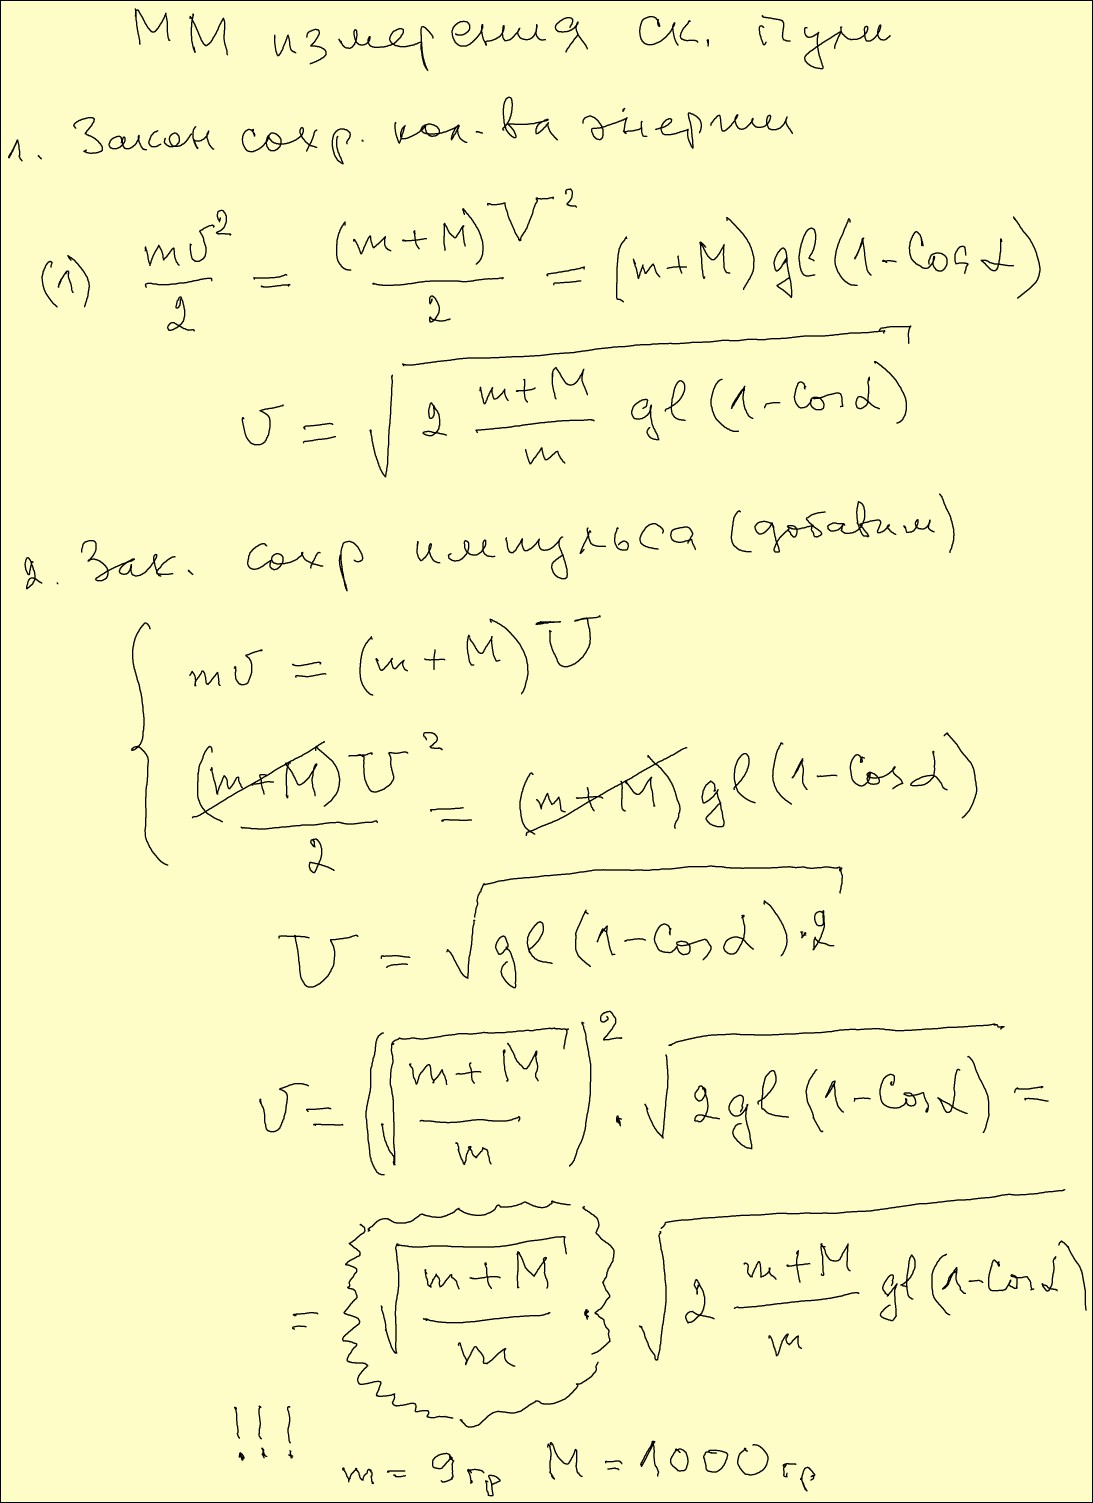 ММ измерения ск. пули
1. Закон сохр. кол-ва энергии
(1) mv²/2 = (m+M)V²/2 = (m+M)gl(1-Cosα)
v = √(2 (m+M)/m gl(1-Cosα))
2. Зак. сохр импульса (добавим)
{ mv = (m+M)U
(m+M)U²/2 = (m+M)gl(1-Cosα)
U = √(gl(1-Cosα)·2)
v = (√((m+M)/m))² · √(2gl(1-Cosα)) =
= √((m+M)/m) · √(2 (m+M)/m gl(1-Cosα))
!!! m = 9гр M = 1000гр